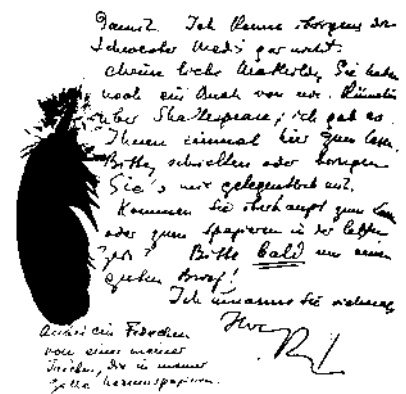 Damit. Ich kenne übrigens die
Schwester Medi's gar nicht.
Meine liebe Mathilde, Sie haben
noch ein Buch von mir.
über Shakespeare; ich gab es
Ihnen einmal hier zum Lesen.
Bitte, schicken oder bringen
Sie's mir gelegentlich mit.
Kommen Sie überhaupt zum
oder zum spazieren in der letzten
Zeit? Bitte bald um einen
guten Brief!
Ich umarme Sie vielmals
Ihre
R
Anbei ein Federchen
von einer meiner
Tauben, die in meiner
Zelle herumspazieren.